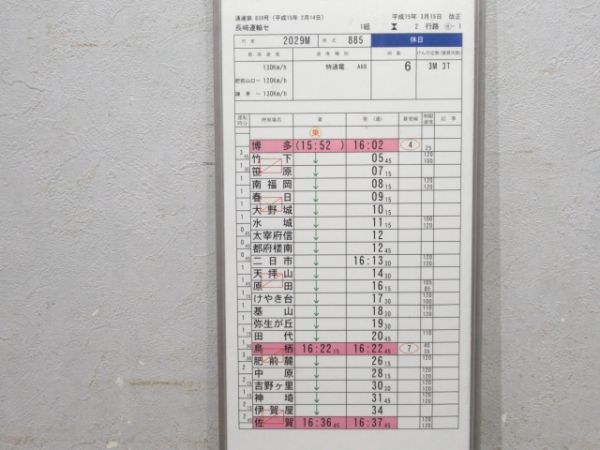 達第 030号 (平成15年 2月14日)
平成15年 3月15日 改正
長崎運輸セ
1組 2 行路
2029M 885 休日
130Km/h 特通電 A60 6 3M 3T
肥前山口～ 120Km/h
諫早～ 130Km/h
着 発(通) 着発線 記事
乗
博多 (15:52 ) 16:02 4 25
竹下 ↓ 05 45
笹原 ↓ 07 15
南福岡 ↓ 08 15
春日 ↓ 09 15
大野城 ↓ 10 15
水城 ↓ 11 15
太宰府信 ↓ 12
都府楼南 ↓ 12 45
二日市 ↓ 16:13 30
天拝山 ↓ 14 30
原田 ↓ 16 15
けやき台 ↓ 17 30
基山 ↓ 18 30
弥生が丘 ↓ 19 30
田代 ↓ 20 45
鳥栖 16:22 15 16:22 45 7
肥前麓 ↓ 26 15
中原 ↓ 28 15
吉野ヶ里 ↓ 30 30
神埼 ↓ 31 45
伊賀屋 ↓ 34
佐賀 16:36 45 16:37 45